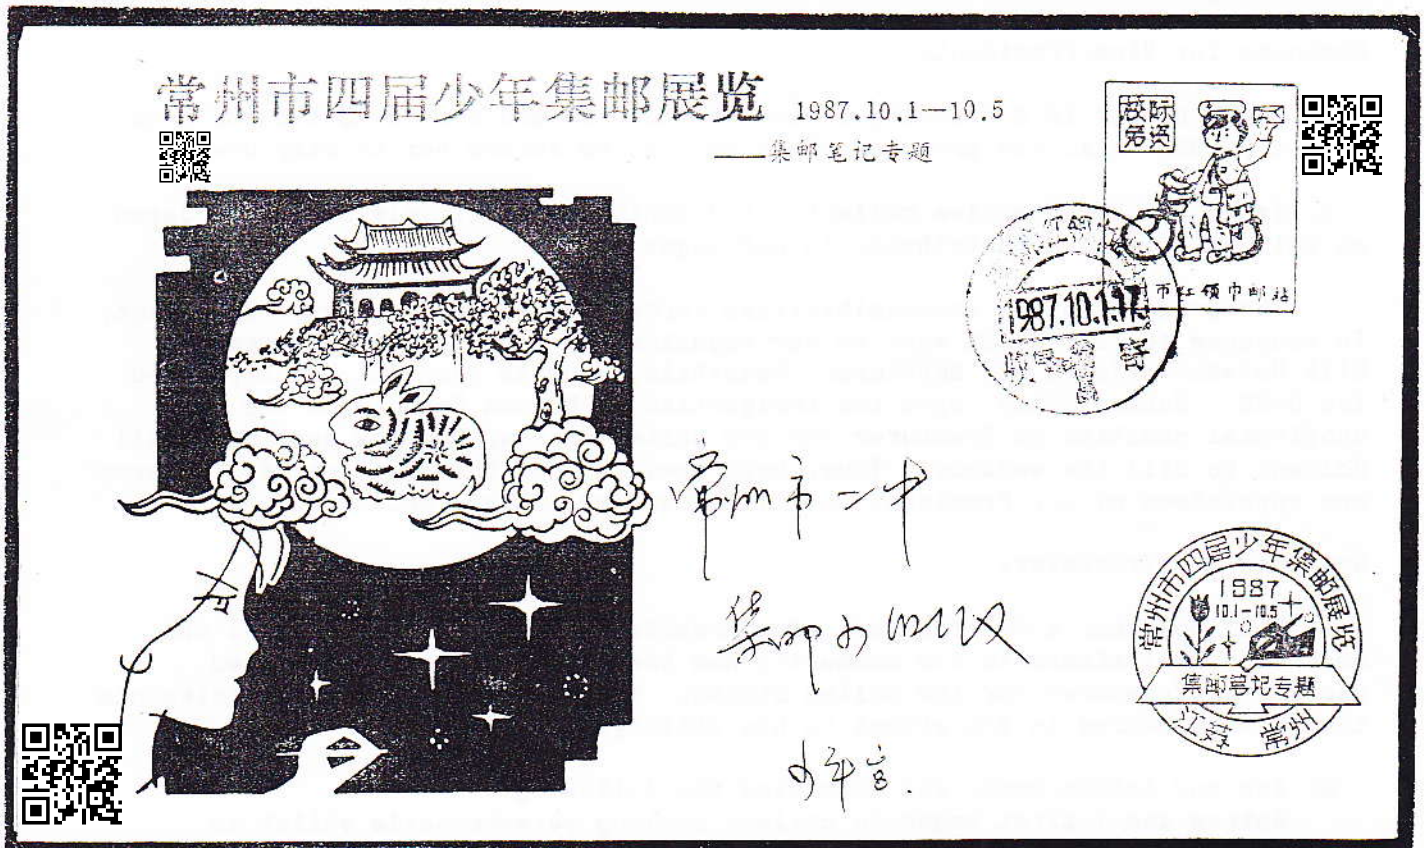 常州市四届少年集邮展览 1987.10.1—10.5
——集邮笔记专题
校际
免资
市红领巾邮站
1987.10.1.17
常州市二中
集邮小组
少年宫
常州市四届少年集邮展览
1987
10.1—10.5
集邮笔记专题
江苏 常州